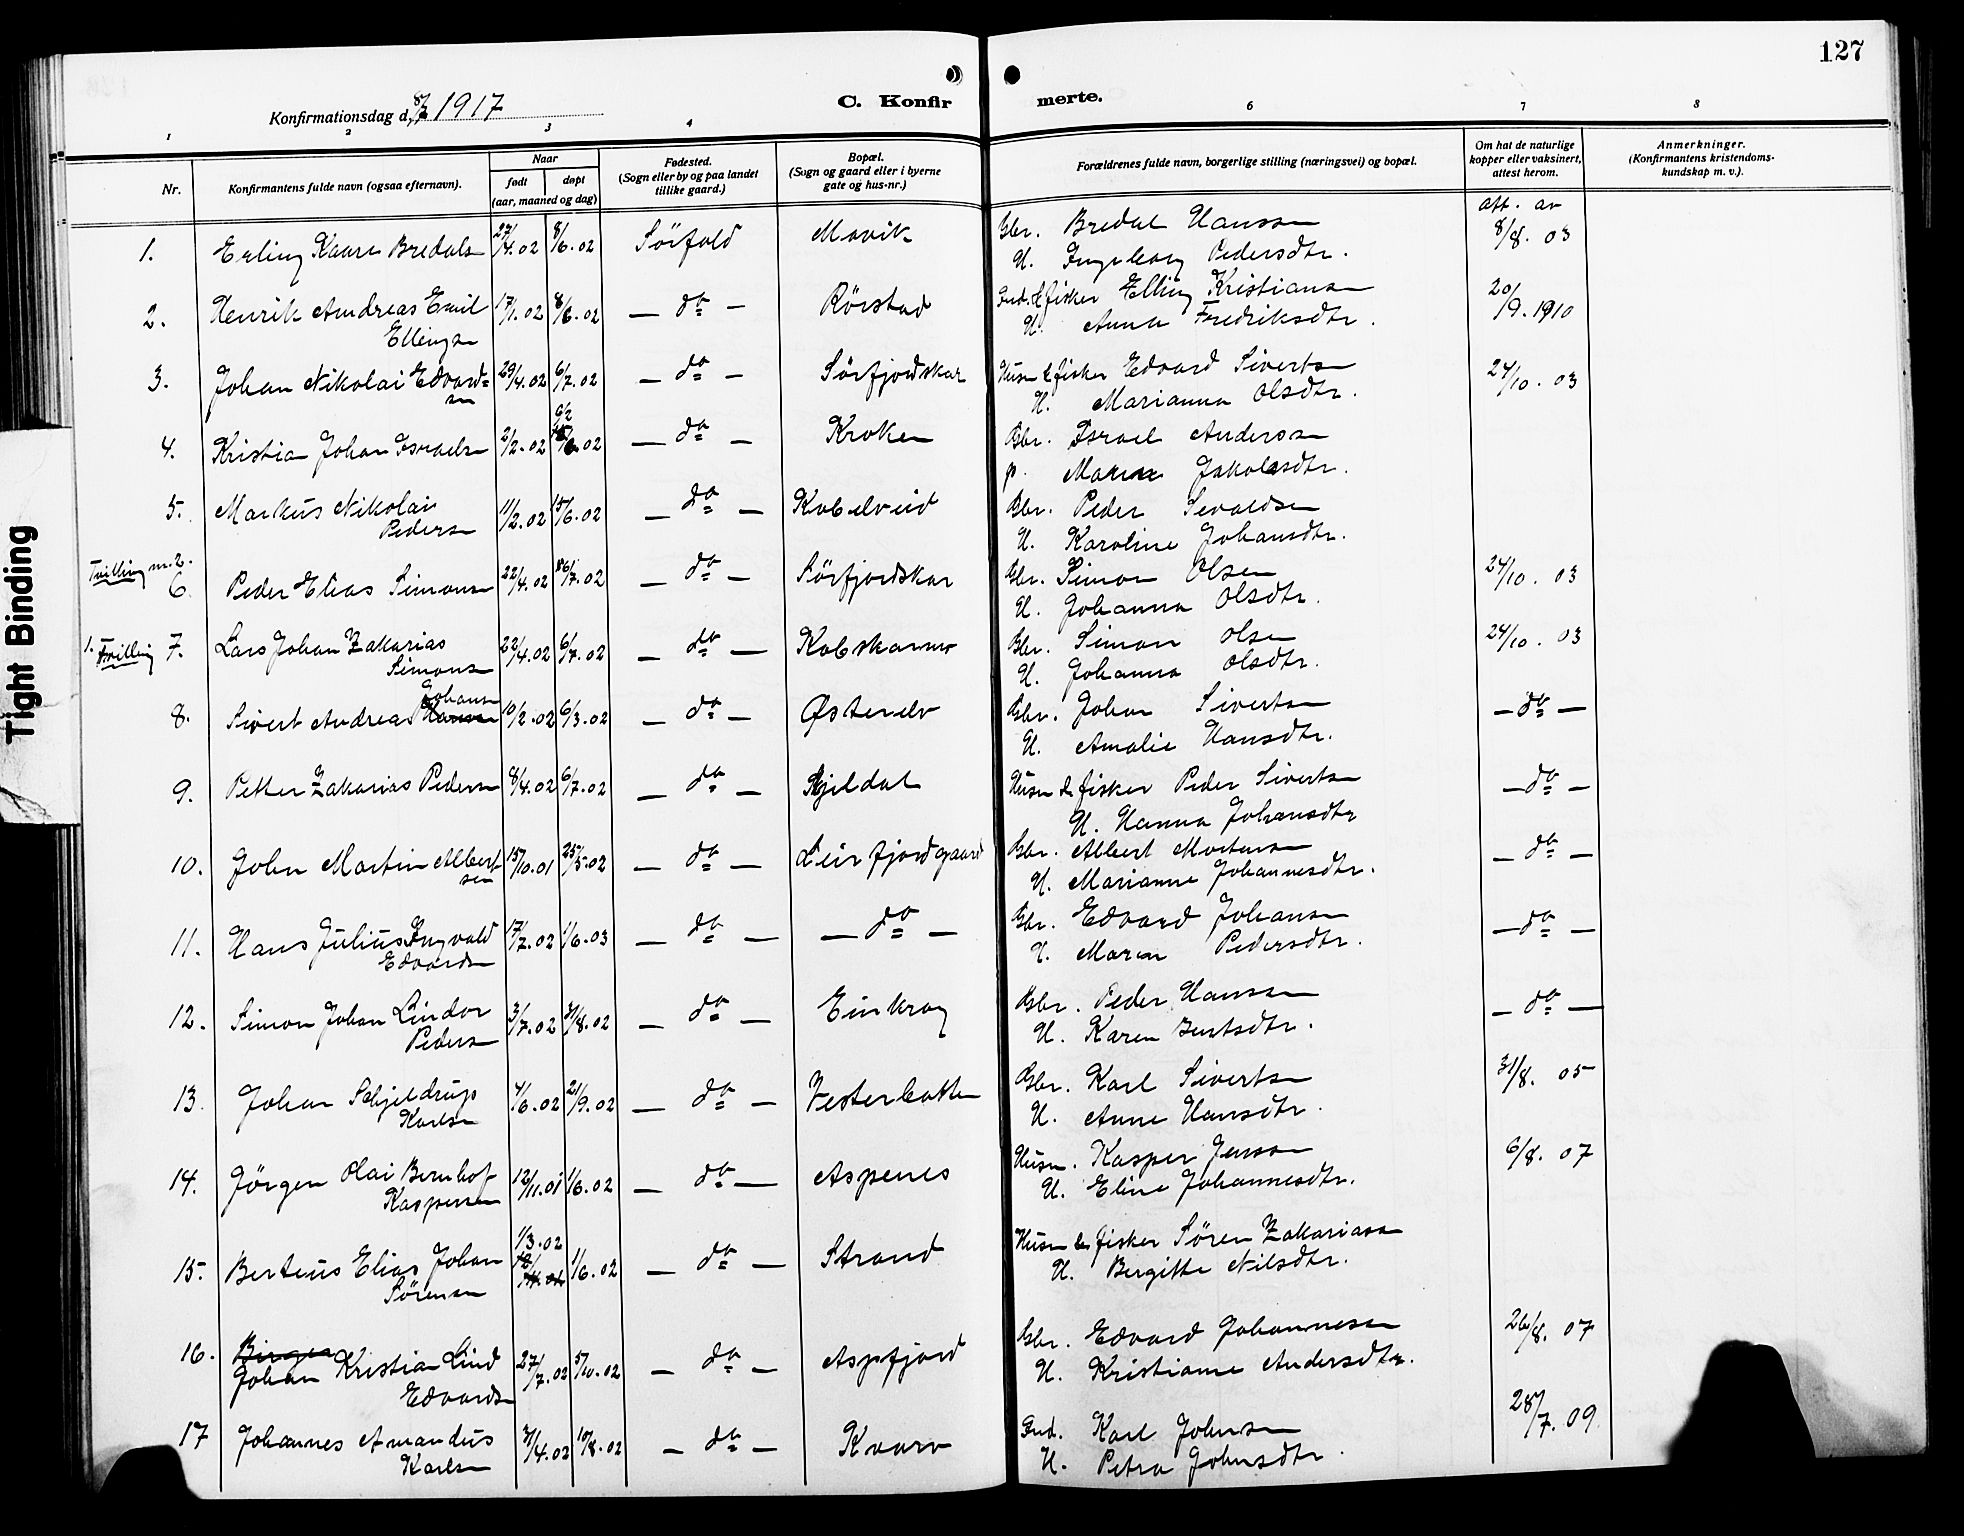 127
Konfirmationsdag d. 8/7 1917
C. Konfir merte.
1 2 3 4 6 7 8
Nr.
Konfirmantens fulde navn (ogsaa efternavn).
Naar
født døpt
(aar, maaned og dag)
Fødested.
(Sogn eller by og paa landet
tillike gaard.)
Bopæl.
(Sogn og gaard eller i byerne
gate og hus-nr.)
Forældrenes fulde navn, borgerlige stilling (næringsvei) og bopæl.
Om hat de naturlige
kopper eller vaksinert,
attest herom.
Anmerkninger.
(Konfirmantens kristendoms-
kundskap m. v.).
1. Erling Kaare Bredals 27/4.02 8/6.02 Sörfold Movik Gbr. Bredal Hanssen att. av 8/8. 03
U. Ingeborg Pedersdtr.
2. Henrik Andreas Emil 17/1.02 8/6.02 — do — Rörstad Fisker Elling Kristiansen 20/9.1910
Ellingsen U. Anna Fredriksdtr.
3. Johan Nikolai Edvard= 29/4.02 6/7.02 — do — Sörfjordskar Husm & fisker Edvard Sivertsen 24/10. 03
sen U. Marianna Olsdtr.
4. Kristian Johan Israelsen 2/2.02 02 — do — Kroken Gbr. Israel Andersen
Jakobsdtr.
5. Markus Nikolai 11/2.02 15/6.02 — do — Kobelveid Gbr. Peder Sevaldsen
Pedersen U. Karoline Johansdtr.
Tvilling nr. 2.
6 Peder Elias Simonsen 22/4.02 6/7.02 — do — Sörfjordskar Gbr. Simon Olsen 24/10. 03
U. Johanna Olsdtr.
1. Tvilling 7. Lars Johan Zakarias 22/4.02 6/7.02 — do — Kobskarmo Gbr. Simon Olsen 24/10. 03
Simonsen U. Johanna Olsdtr.
Johansen
8. Sivert Andreas Hansen 10/2.02 6/3.02 — do — Østerelv Gbr. Johan Sivertsen — do —
U. Amalie Hansdtr.
9. Petter Zakarias Pedersen 8/4.02 6/7.02 — do — Kjeldal Husm & fisker Peder Sivertsen — do —
U. Hanna Johansdtr
10. John Martin Albert 15/10.01 25/5.02 — do — Leirfjordgaard Gbr. Albert Mortensen — do —
sen U. Marianne Johannesdtr.
11. Hans Julius Ingvald 17/2.02 1/6.03 — do — — do — Gbr. Edvard Johansen — do —
Edvardsen U. Maren Pedersdtr.
12. Simon Johan Lindor 3/7.02 31/8.02 — do — Einkrog Gbr. Peder Hanssen — do —
Pedersen U. Karen Bentsdtr.
13. Johan Schjeldrup 4/6.02 21/9.02 — do — Vesterbotten Gbr. Karl Sivertsen 31/8. 05
Karlsen U. Anne Hansdtr.
14. Jörgen Olai Bernhof 12/11.01 1/6.02 — do — Aspenes Husm. Kasper Jenssen 6/8. 07
Kaspersen U. Eline Johannesdtr.
1/3.02
15. Berteus Elias Johan 1/6.02 — do — Strand Husm & fisker Sören Zakariassen
Sörensen U. Birgitte Nilsdtr.
16. Birger
Johan Kristian Lind 27/7.02 5/10.02 — do — Aspfjord Gbr. Edvard Johannesen 26/8. 07
Edvardsen U. Kristianne Andersdtr.
17 Johannes Amandus 3/4.02 10/8.02 — do — Kvarv Grd. Karl Johnsen 28/7. 09
Karlsen U. Petra Johnsdtr
Tight Binding